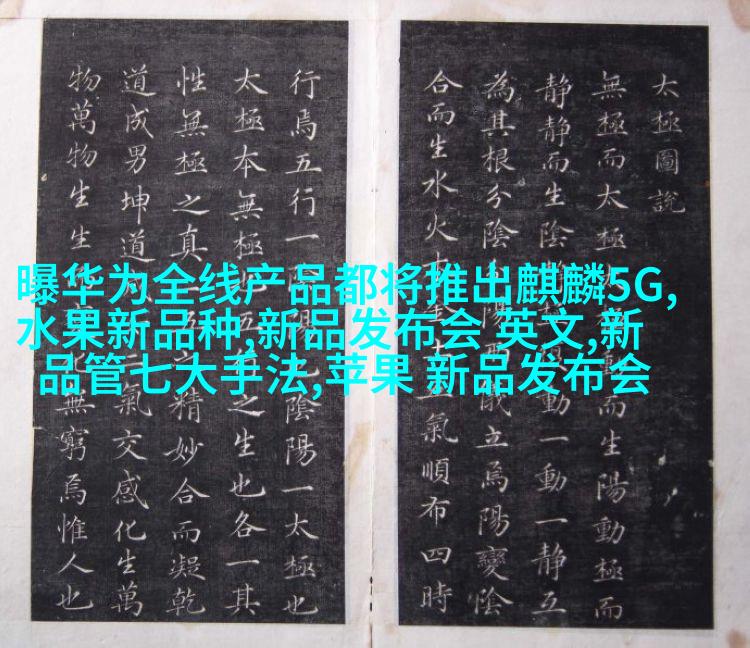 曝华为全线产品都将推出麒麟5G,
水果新品种,新品发布会 英文,新
品管七大手法,苹果 新品发布会
太極圖說
無極而太極動而生陽動極而
静静而生陰動一動一静互
為其根分陰陽兩儀立焉陽變陰
合而生水火土五氣順布四時
行焉五行一陰陽也陰陽一太極也
太極本無極也五行之生也各一其
性無極之真二五之精妙合而凝乾
道成男坤道成二氣交感化生萬
物萬物生生化無窮焉惟人也